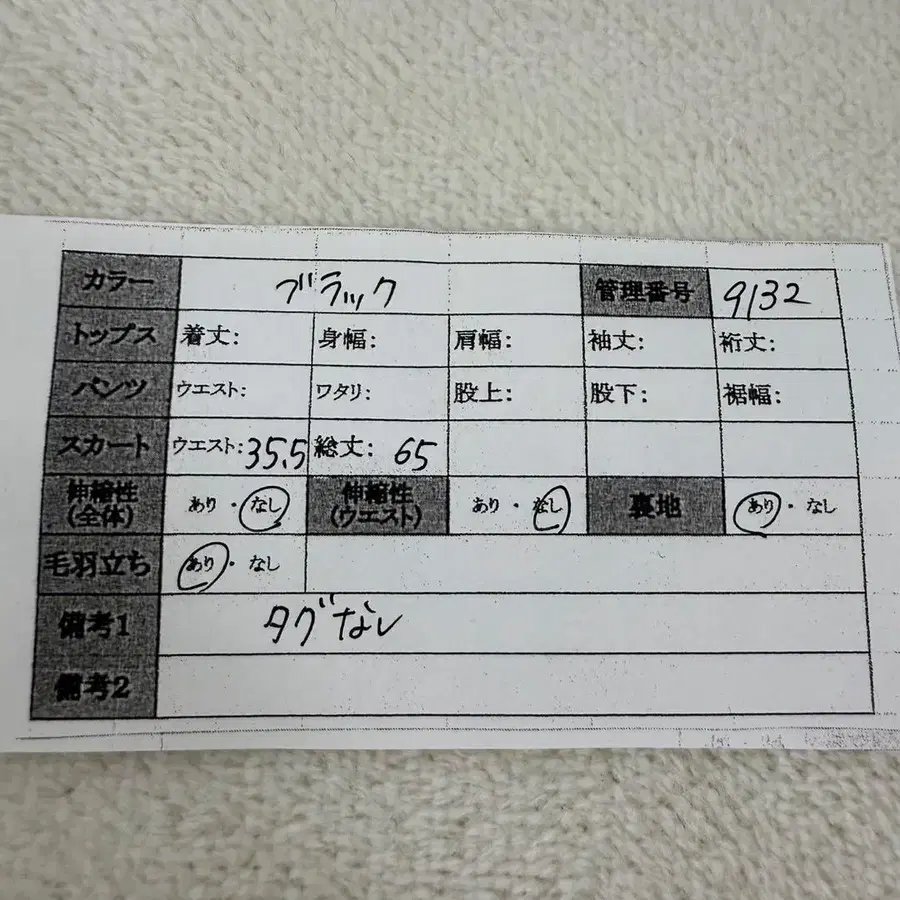 カラー ブラック 管理番号 9132
トップス 着丈: 身幅: 肩幅: 袖丈: 裄丈:
パンツ ウエスト: ワタリ: 股上: 股下: 裾幅:
スカート ウエスト: 35.5 総丈: 65
伸縮性(全体) あり・なし 伸縮性(ウエスト) あり・なし 裏地 あり・なし
毛羽立ち あり・なし
備考1 タグなし
備考2